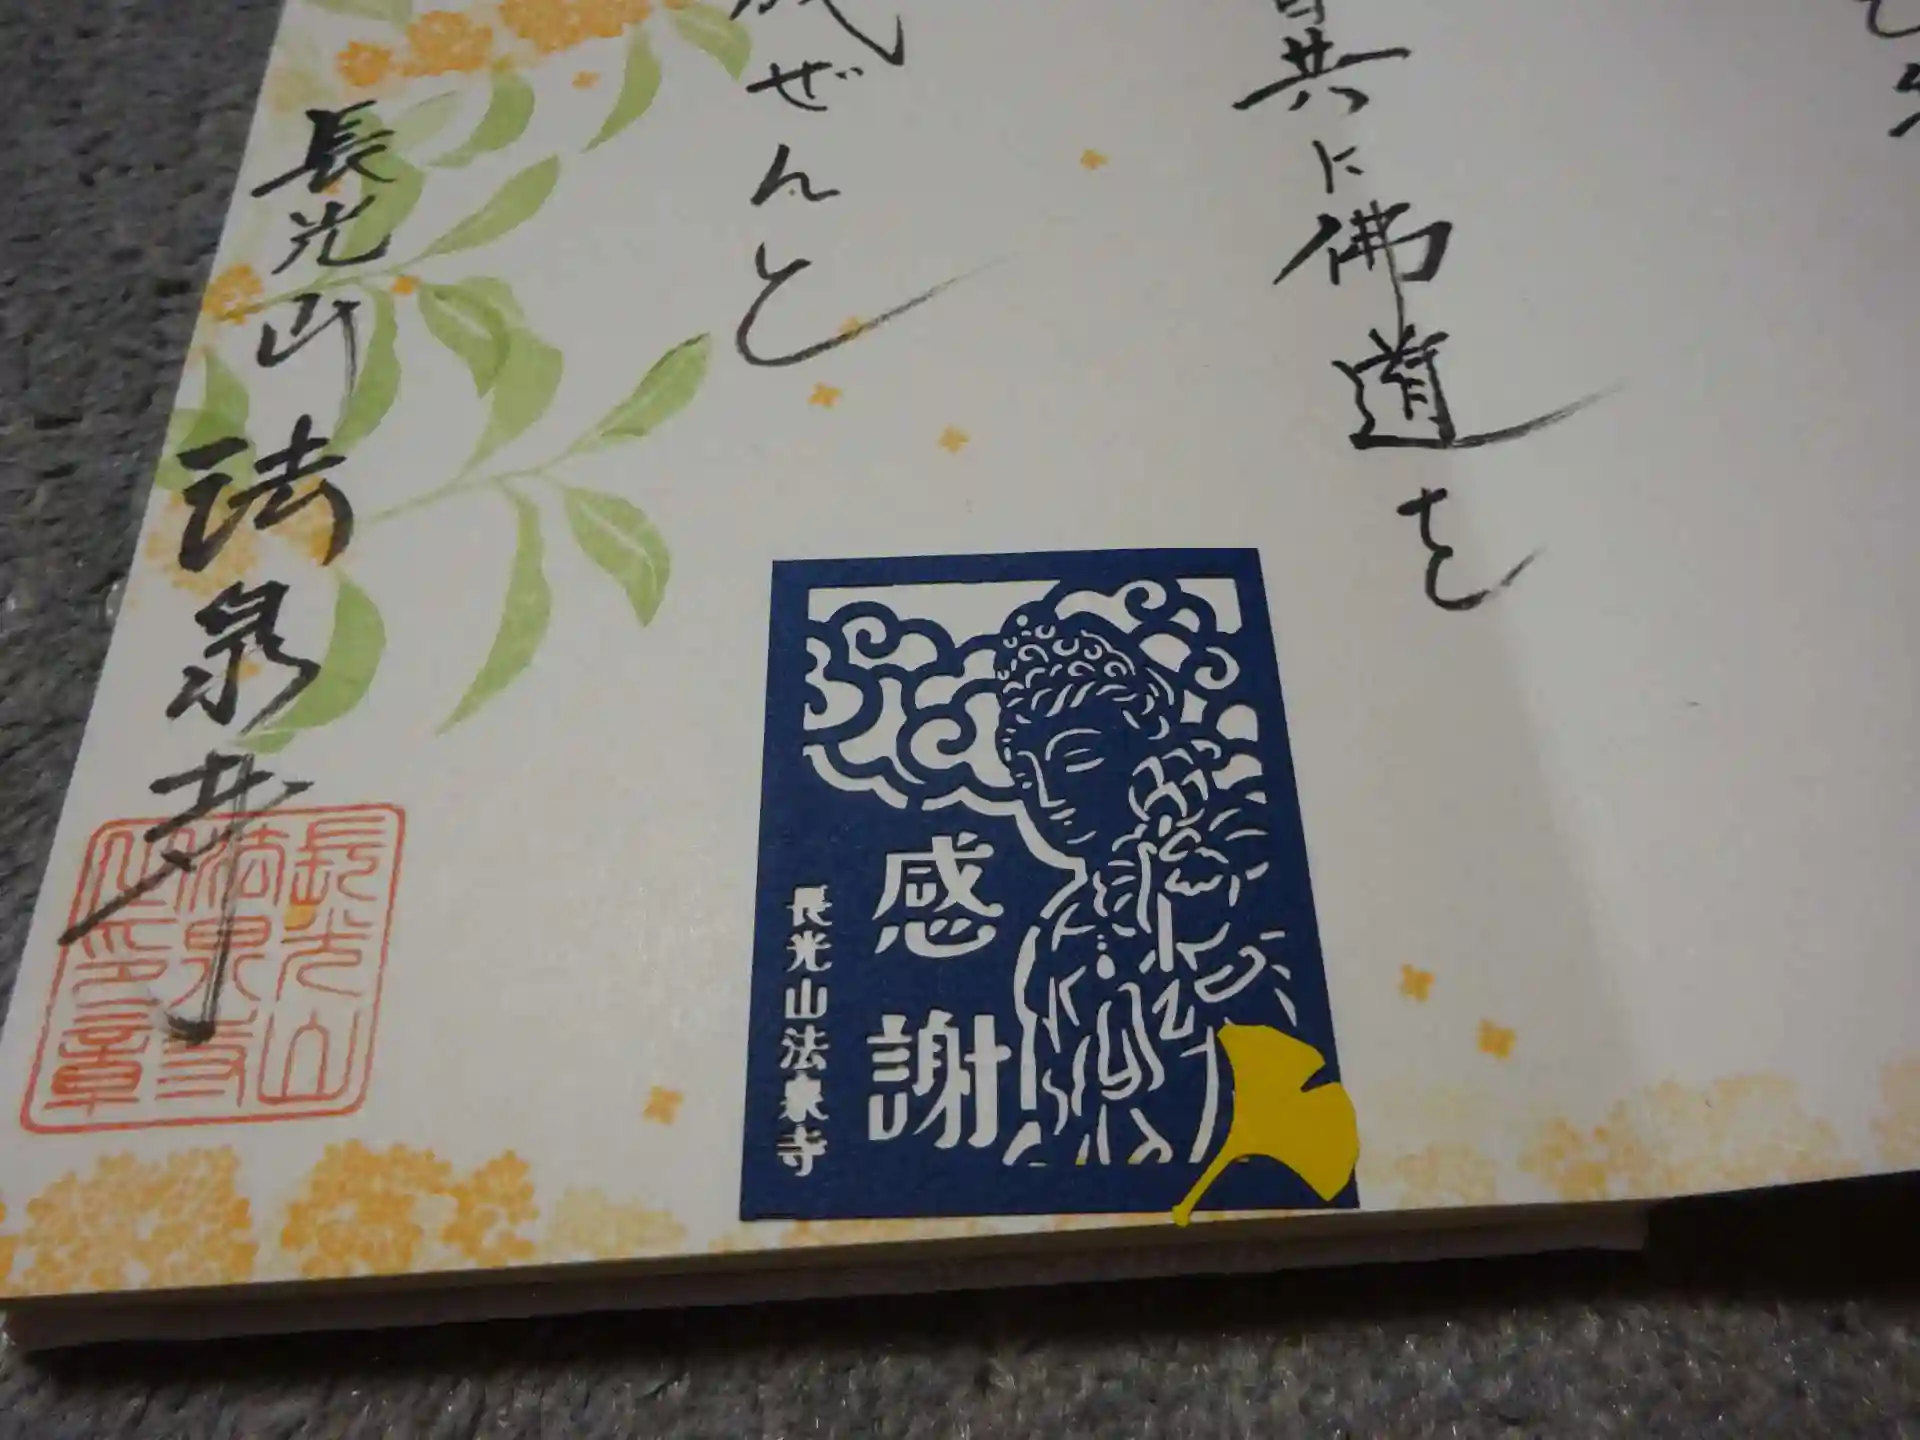 皆共に佛道を
成ぜんと
長光山 法泉寺
長光山
法泉寺
之印章
感謝
長光山法泉寺